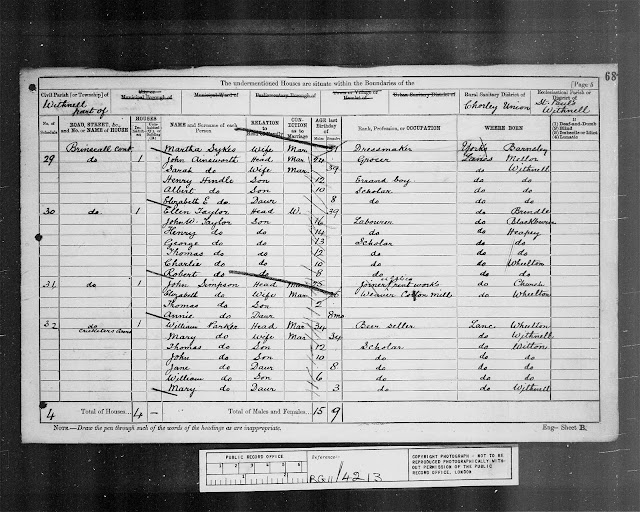 68
The undermentioned Houses are situate within the Boundaries of the
[Page 5
Civil Parish [or Township] of
Withnell part of
Municipal Borough of
Municipal Ward of
Parliamentary Borough of
Town or Village or Hamlet of
Urban Sanitary District of
Rural Sanitary District of
Chorley Union
Ecclesiastical Parish or District of
St Pauls Withnell
No. of Schedule
ROAD, STREET, &c., and No. or NAME of HOUSE
HOUSES
NAME and Surname of each Person
RELATION to Head of Family
CONDITION as to Marriage
AGE last Birthday of
Males
Females
Rank, Profession, or OCCUPATION
WHERE BORN
If (1) Deaf-and-Dumb (2) Blind (3) Imbecile or Idiot (4) Lunatic
Brinscall Cont Martha Sykes Wife Mar Dressmaker Yorks Barnsley
29 do 1 John Ainsworth Head Mar Grocer Lancs Mellor
Sarah do Wife Mar 39 do Withnell
Henry Hindle Son 12 Errand boy do do
Albert do Son 10 Scholar do do
Elizabeth E do Daur 8 do do do
30 do 1 Ellen Taylor Head W. 39 do Brindle
John W. Taylor Son 16 Labourer do Blackburn
Henry do do 14 do do Heapey
George do do 13 Scholar do do
Thomas do do 12 do do do
Charlie do do 10 do do Wheelton
Robert do do 8 do do do
31 do 1 John Simpson Head Mar 25 Joiner Print works do Church
Elizabeth do Wife Mar 26 Weaver Cotton Mill do Wheelton
Thomas do Son 2
Annie do Daur 8mo
32 do Cricketers Arms 1 William Parker Head Mar 34 Beer seller Lanc Wheelton
Mary do Wife Mar 34 do Withnell
Thomas do Son 12 Scholar do
John do Son 10 do do do
Jane do Daur 8 do do do
William do Son 6 do do do
Mary do Daur 3 do Withnell
4 Total of Houses... 4 – Total of Males and Females... 15 9
NOTE.—Draw the pen through such of the words of the headings as are inappropriate.
Eng— Sheet B.
PUBLIC RECORD OFFICE
1 2 3 4 5 6
1 2
Reference:-
RG 11/4213
COPYRIGHT PHOTOGRAPH - NOT TO BE REPRODUCED PHOTOGRAPHICALLY WITHOUT PERMISSION OF THE PUBLIC RECORD OFFICE, LONDON